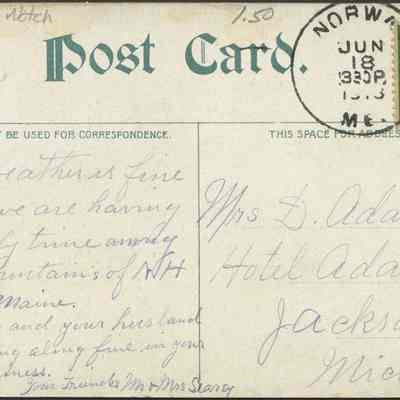 Notch
1.50
Post Card.
NORWA
JUN
18
1330P.
1913
ME.
T BE USED FOR CORRESPONDENCE.
THIS SPACE FOR ADDRES
eather is fine
we are having
ly time among
ountains of N H
Maine.
and your husband
ng along fine in your
iness.
Your Friends Mr & Mrs Searcy
Mrs D. Ada
Hotel Ada
Jackso
Mich